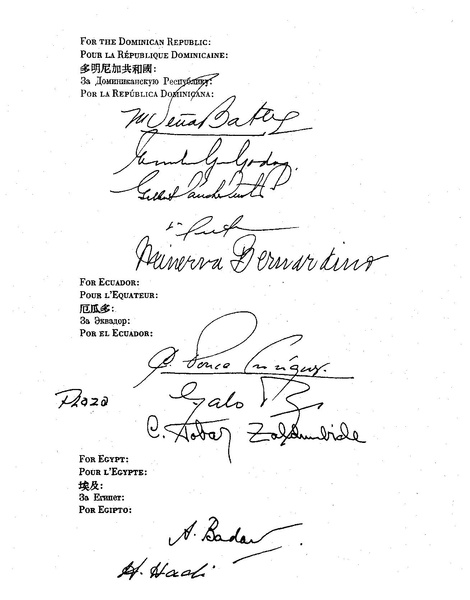 FOR THE DOMINICAN REPUBLIC:
POUR LA RÉPUBLIQUE DOMINICAINE:
多明尼加共和國:
За Доминиканскую Республику:
POR LA REPÚBLICA DOMINICANA:
M Peña Batlle
Minerva Bernardino
FOR ECUADOR:
POUR L'EQUATEUR:
厄瓜多:
За Эквадор:
POR EL ECUADOR:
C. Ponce Enríquez.
Galo
Plaza
C. Tobar Zaldumbide
FOR EGYPT:
POUR L'EGYPTE:
埃及:
За Египет:
POR EGIPTO:
A. Badawi
H. Hadi